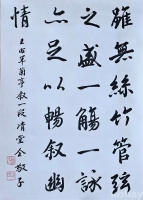 雖無絲竹管弦
之盛一觴一詠
亦足以暢叙幽
情
王右軍蘭亭叙一段 清堂金敬子